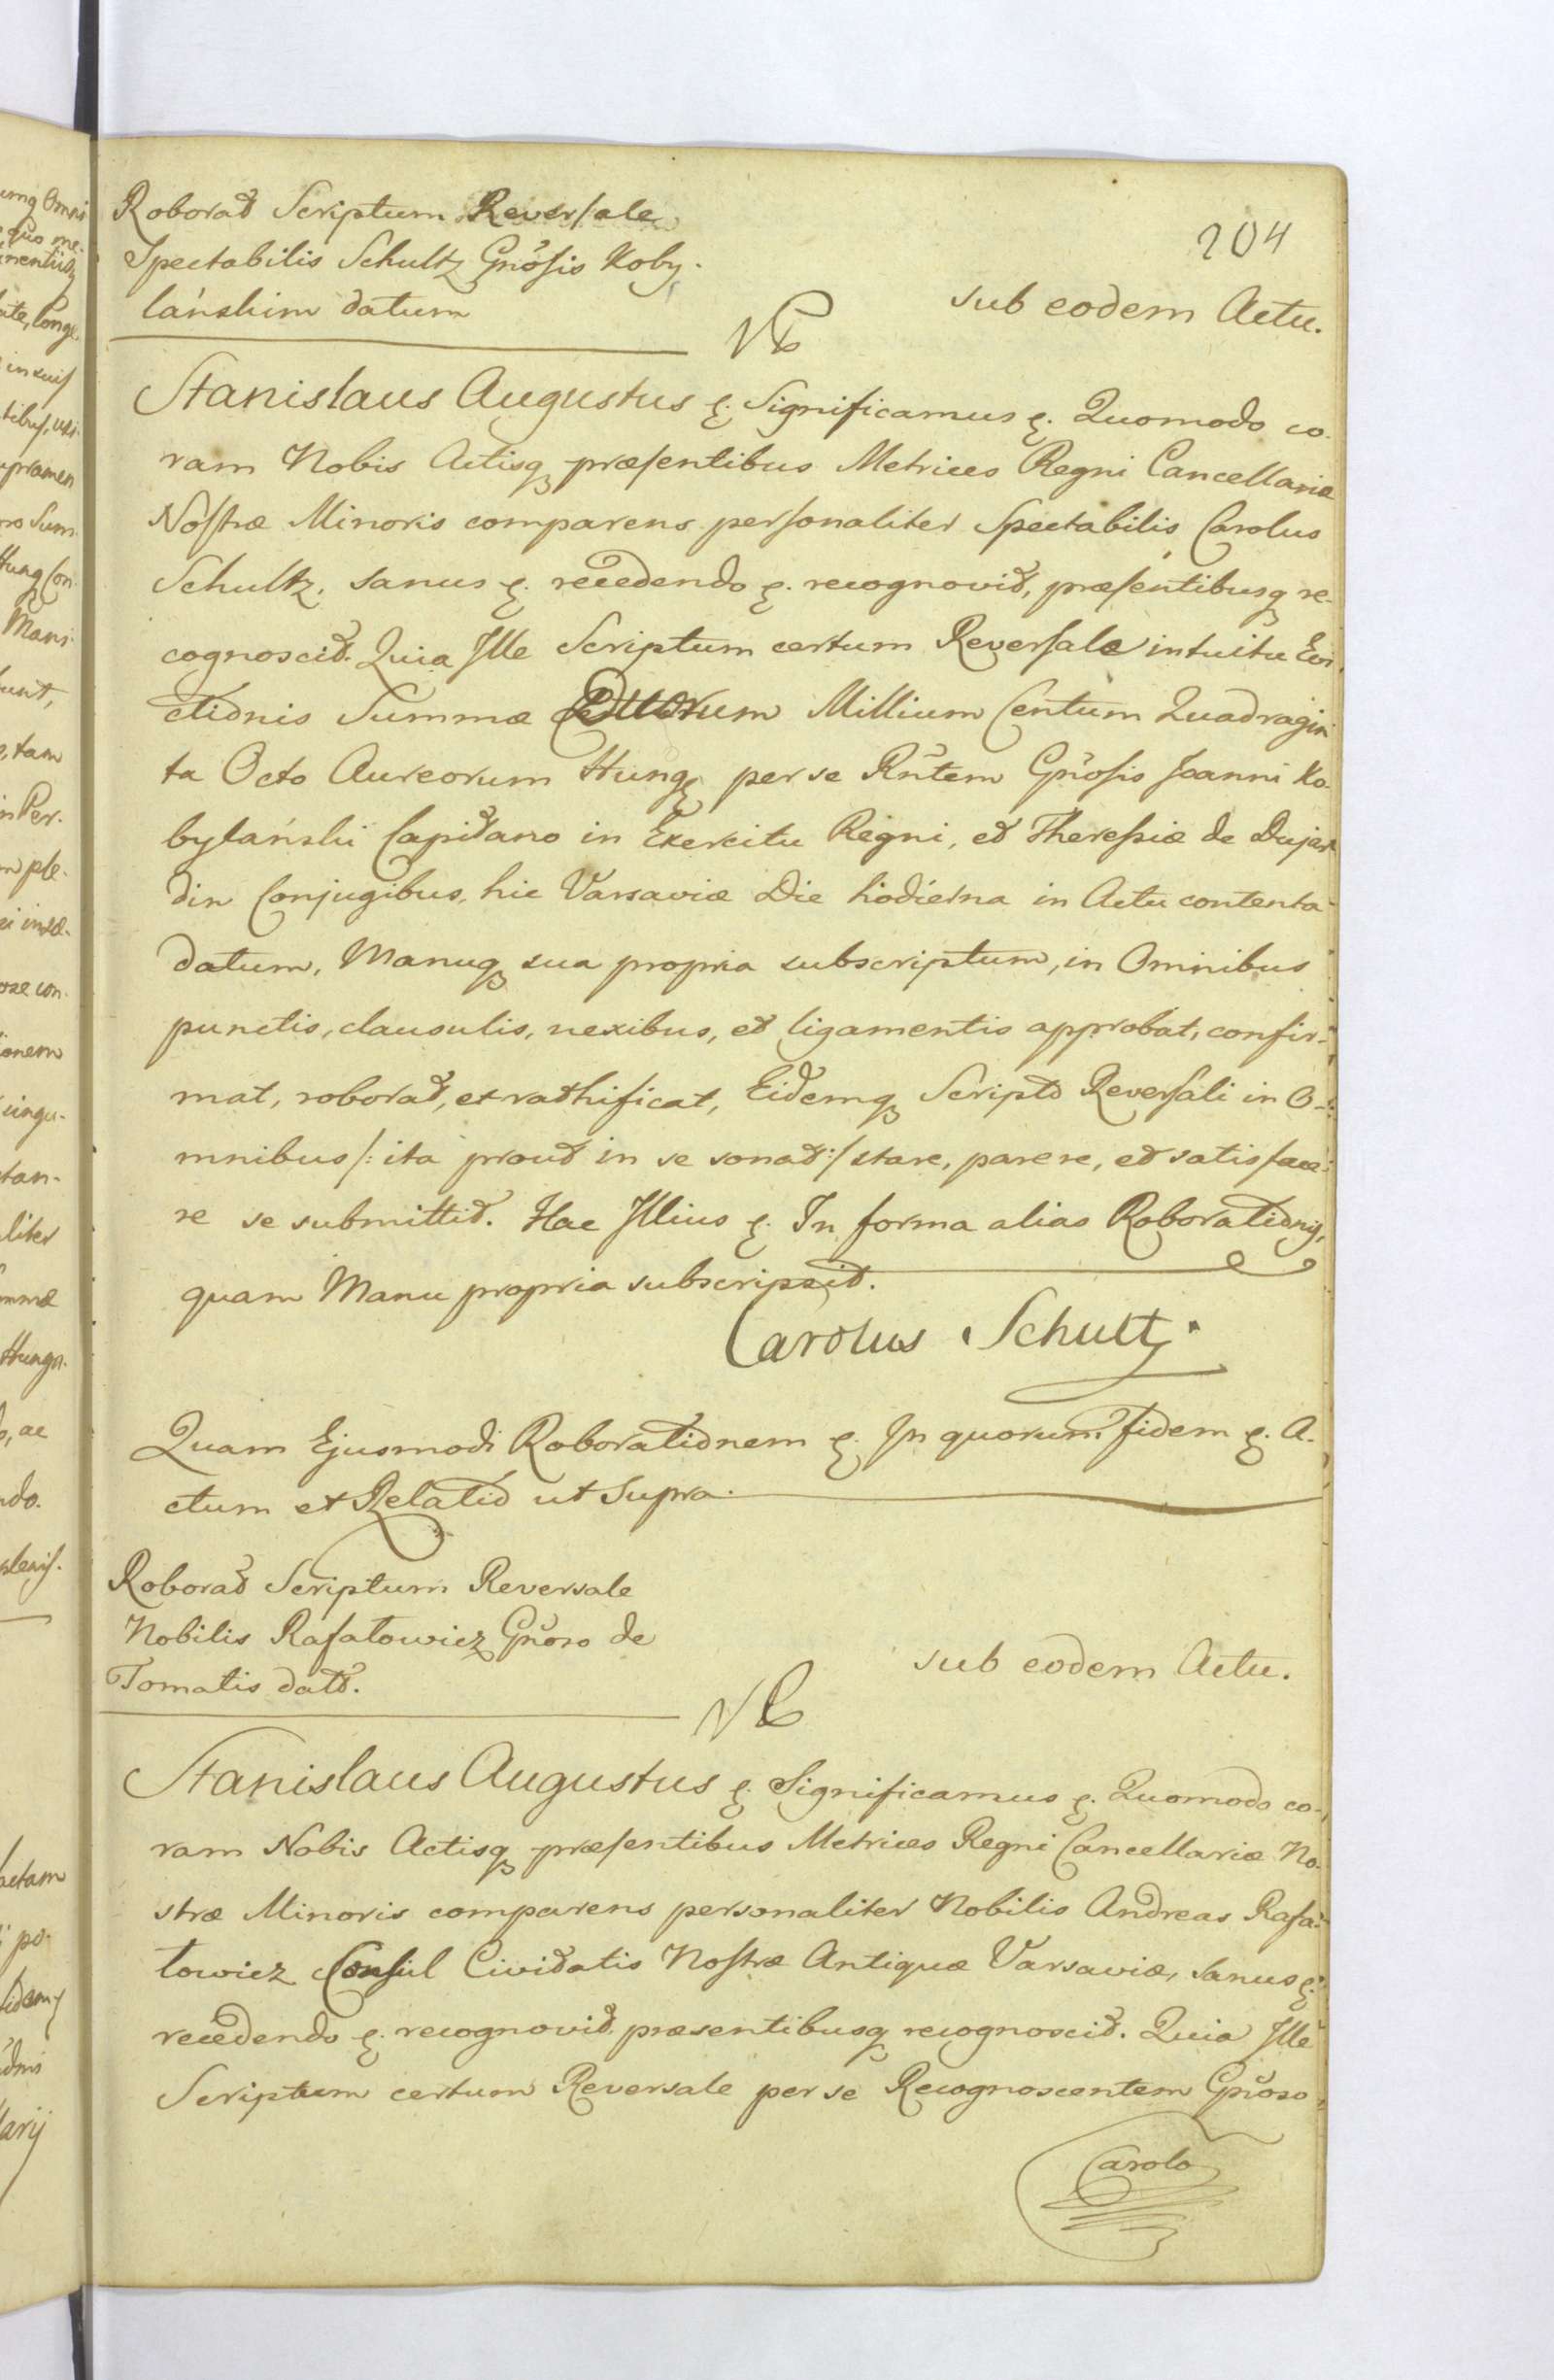 204
Roborat Scriptum Reversale
Spectabilis Schultz Gnosis Koby-
lańskim datum
sub eodem Actu.
Stanislaus Augustus &. Significamus &. Quomodo co-
ram Nobis Actisq præsentibus Metrices Regni Cancellariæ
Nostræ Minoris comparens personaliter Spectabilis Carolus
Schultz, sanus &. recedendo &. recognovit, præsentibusq re-
cognoscit. Quia Ille Scriptum certum Reversale intuitu Evi-
ctionis Summæ Duorum Millium Centum Quadragin
ta Octo Aureorum Hung per se Rntem Gnosis Joanni Ko-
bylański Capitano in Exercitu Regni, et Theressiæ de Dujar
din Conjugibus, hic Varsaviæ Die hodierna in Actu contenta
datum, Manuq sua propria subscriptum, in Omnibus
punctis, clausulis, nexibus, et ligamentis approbat, confir-
mat, roborat, et rathificat, Eidemq Scripto Reversali in O-
mnibus /: ita prout in se sonat :/ stare, parere, et satisface-
re se submittit. Hac Illius &. In forma alias Roborationis,
quam Manu propria subscripsit.
Carolus Schultz
Quam Ejusmodi Roborationem &. In quorum fidem &. A-
ctum et Relatio ut Supra.
Roborat Scriptum Reversale
Nobilis Rafałowicz Gnoso de
Tomatis dato.
sub eodem Actu.
Stanislaus Augustus &. Significamus &. Quomodo co-
ram Nobis Actisq præsentibus Metrices Regni Cancellariæ No-
stræ Minoris comparens personaliter Nobilis Andreas Rafa-
łowicz Consul Civitatis Nostræ Antiquæ Varsaviæ, sanus &.
recedendo &. recognovit præsentibusq recognoscit. Quia Ille
Scriptum certum Reversale per se Recognoscentem Gnoso
Carolo